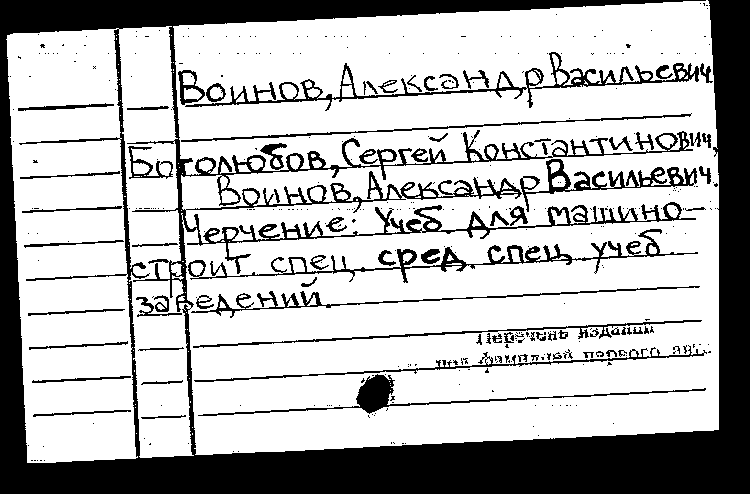 Воинов, Александр Васильевич
Боголюбов, Сергей Константинович,
Воинов, Александр Васильевич.
Черчение: Учеб. для машино-
строит. спец. сред. спец. учеб.
заведений.
Перечень изданий
под фамилией первого авт.